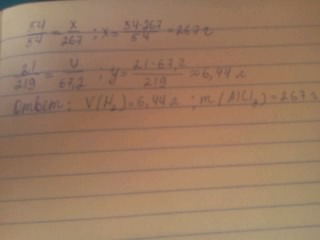 54/54 = x/267 ; x = 54·267/54 = 267 г
21/219 = y/67,2 ; y = 21·67,2/219 ≈ 6,44 л
Ответ: V(H₂) = 6,44 л ; m(AlCl₃) = 267 г